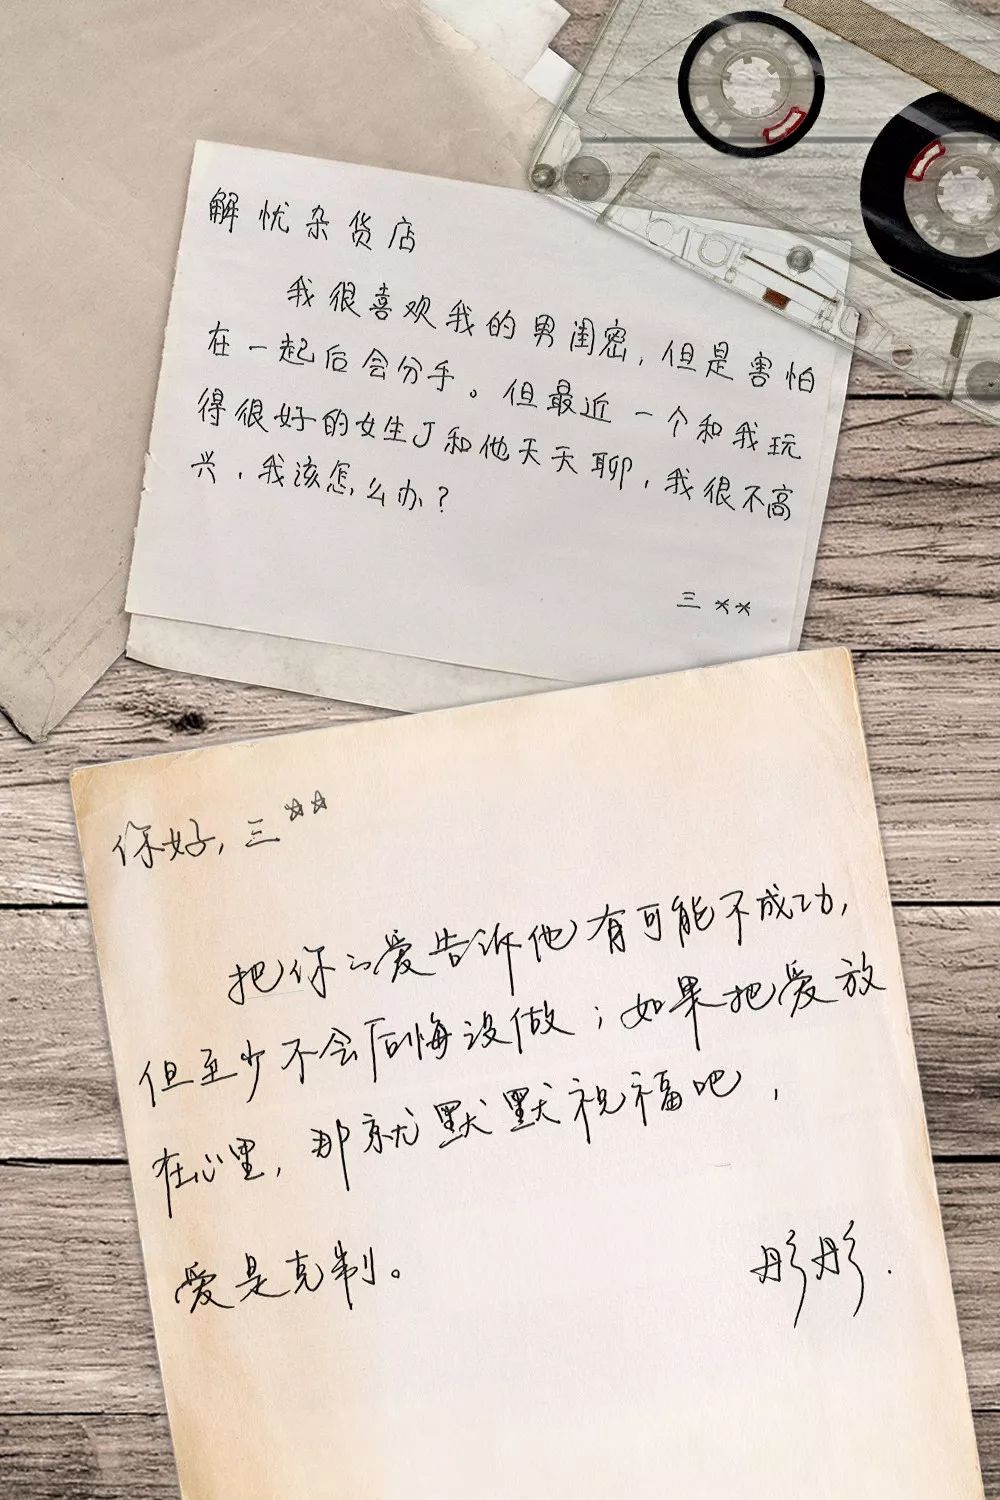 解忧杂货店
我很喜欢我的男闺密，但是害怕
在一起后会分手。但最近一个和我玩
得很好的女生J和他天天聊，我很不高
兴，我该怎么办？
三**
你好，三☆☆
把你的爱告诉他有可能不成功，
但至少不会后悔没做；如果把爱放
在心里，那就默默祝福吧，
爱是克制。
彤彤.